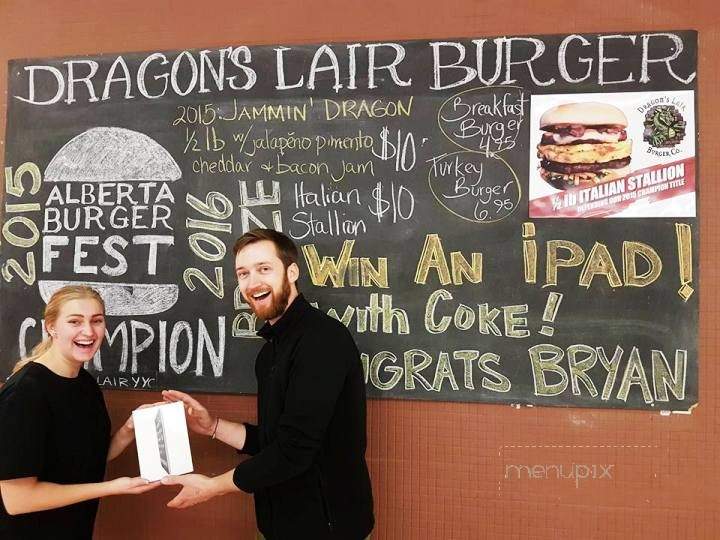 DRAGON'S LAIR BURGER
2015: JAMMIN' DRAGON
1/2 lb w/ jalapéno pimento
cheddar & bacon jam
$10
Breakfast
Burger
4.95
Turkey
Burger
6.95
Italian
Stallion
$10
2015
ALBERTA
BURGER
FEST
CHAMPION
2016
LAIRYYC
WIN AN iPAD!
With COKE!
NGRATS BRYAN
Dragon's Lair
BURGER CO.
1/2 lb ITALIAN STALLION
DEFENDING OUR 2015 CHAMPION TITLE
menupix